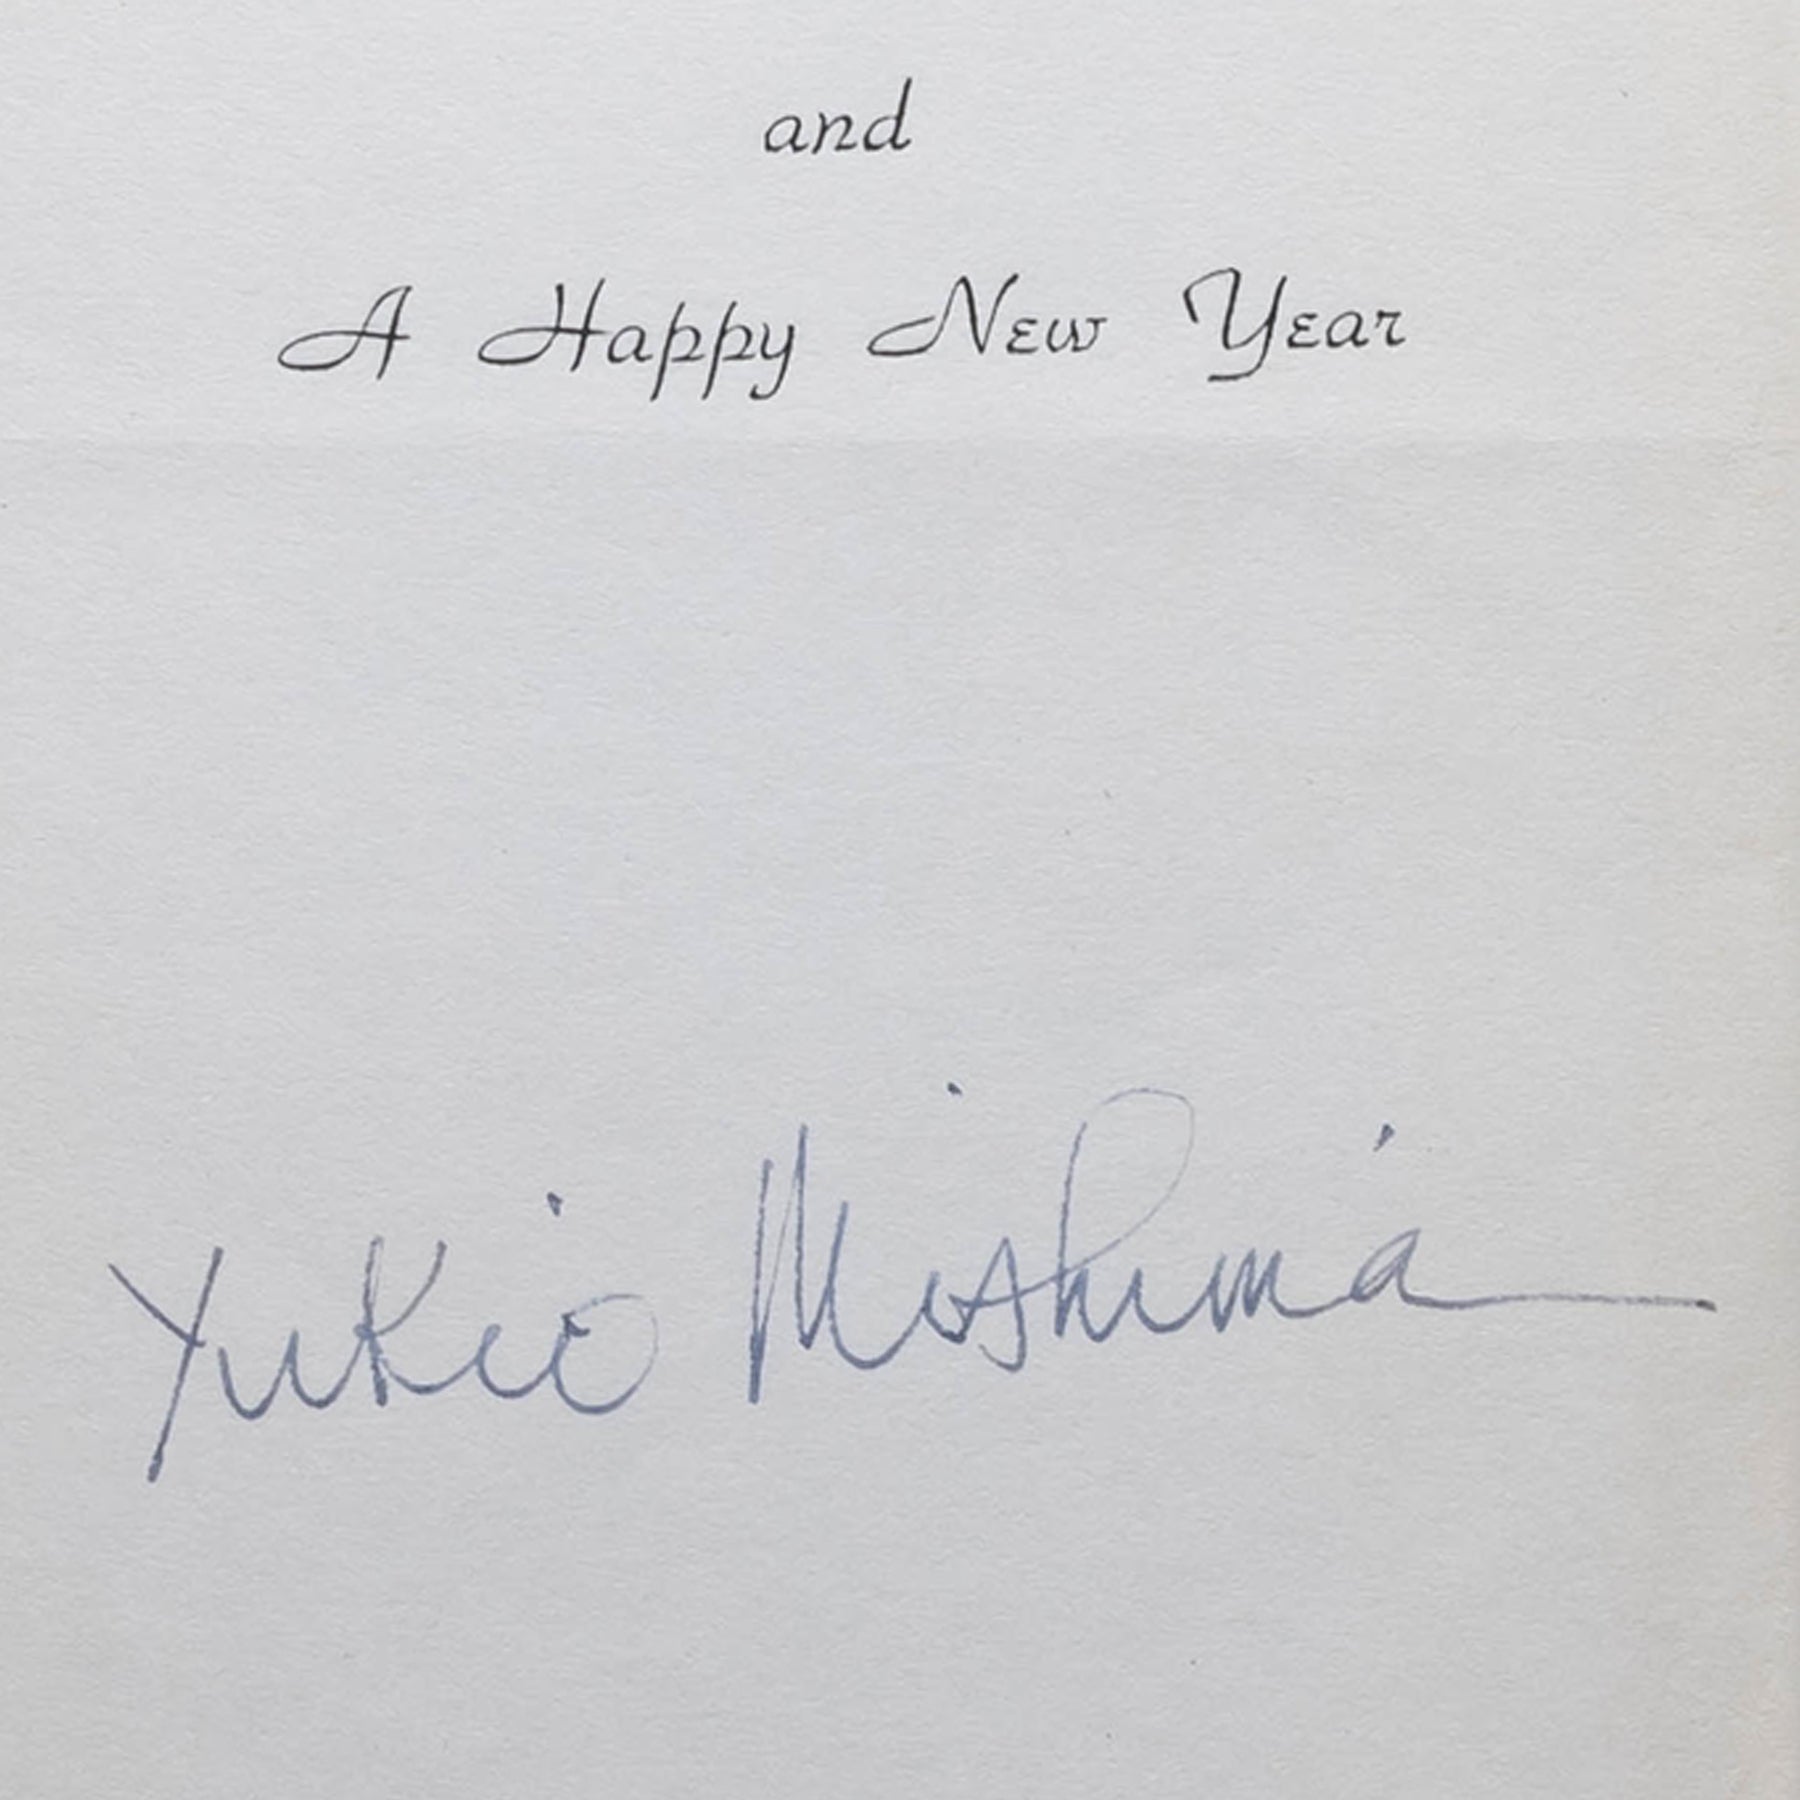 and
A Happy New Year
Yukio Mishima